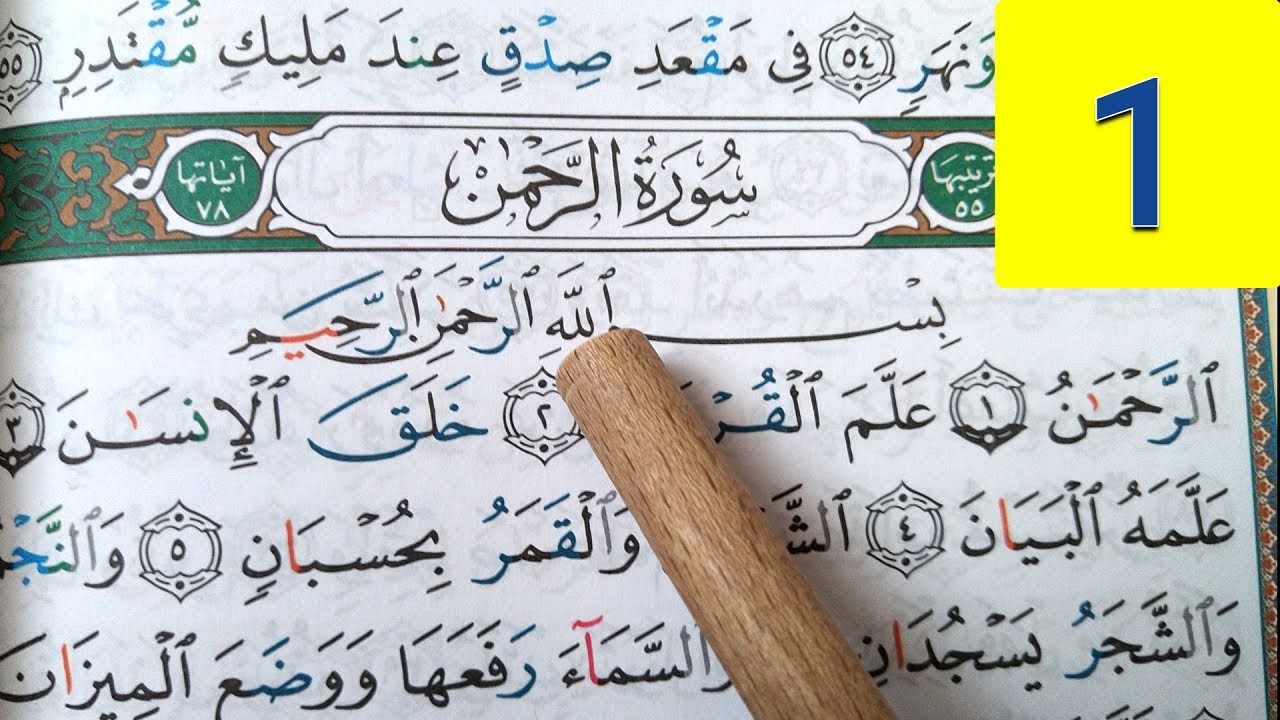 وَنَهَرٍ ٥٤ فِى مَقْعَدِ صِدْقٍ عِندَ مَلِيكٍ مُّقْتَدِرٍ ٥٥
1
ترتيبها ٥٥ سُورَةُ الرَّحْمَٰن آياتها ٧٨
بِسْمِ ٱللَّهِ ٱلرَّحْمَٰنِ ٱلرَّحِيمِ
ٱلرَّحْمَٰنُ ١ عَلَّمَ ٱلْقُرْ ٢ خَلَقَ ٱلْإِنسَٰنَ ٣
عَلَّمَهُ ٱلْبَيَانَ ٤ ٱلشَّ وَٱلْقَمَرُ بِحُسْبَانٍ ٥ وَٱلنَّجْمُ
وَٱلشَّجَرُ يَسْجُدَانِ وَٱلسَّمَآءَ رَفَعَهَا وَوَضَعَ ٱلْمِيزَانَ